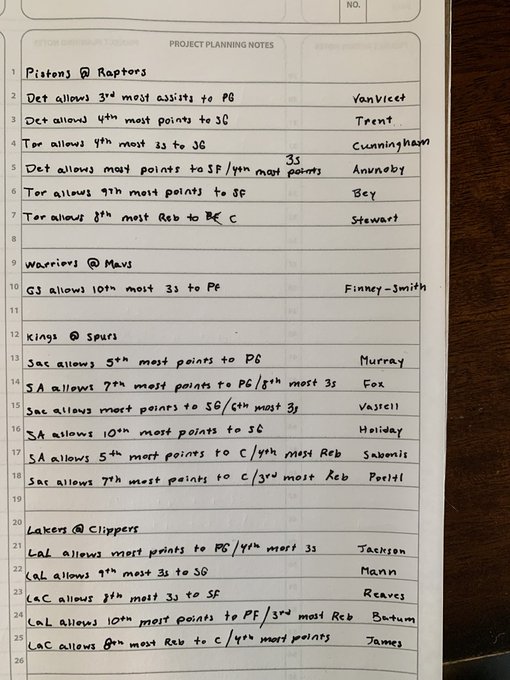 NO.
PROJECT PLANNING NOTES
1 Pistons @ Raptors
2 Det allows 3rd most assists to PG VanVleet
3 Det allows 4th most points to SG Trent
4 Tor allows 4th most 3s to SG Cunningham
3s
5 Det allows most points to SF/4th most points Anunoby
6 Tor allows 9th most points to SF Bey
7 Tor allows 8th most Reb to C Stewart
8
9 Warriors @ Mavs
10 GS allows 10th most 3s to PF Finney-Smith
11
12 Kings @ Spurs
13 Sac allows 5th most points to PG Murray
14 SA allows 7th most points to PG/8th most 3s Fox
15 Sac allows most points to SG/6th most 3s Vassell
16 SA allows 10th most points to SG Holiday
17 SA allows 5th most points to C/4th most Reb Sabonis
18 Sac allows 7th most points to C/3rd most Reb Poeltl
19
20 Lakers @ Clippers
21 LaL allows most points to PG/4th most 3s Jackson
22 LaL allows 9th most 3s to SG Mann
23 LaC allows 8th most 3s to SF Reaves
24 LaL allows 10th most points to PF/3rd most Reb Batum
25 LaC allows 8th most Reb to C/4th most points James
26